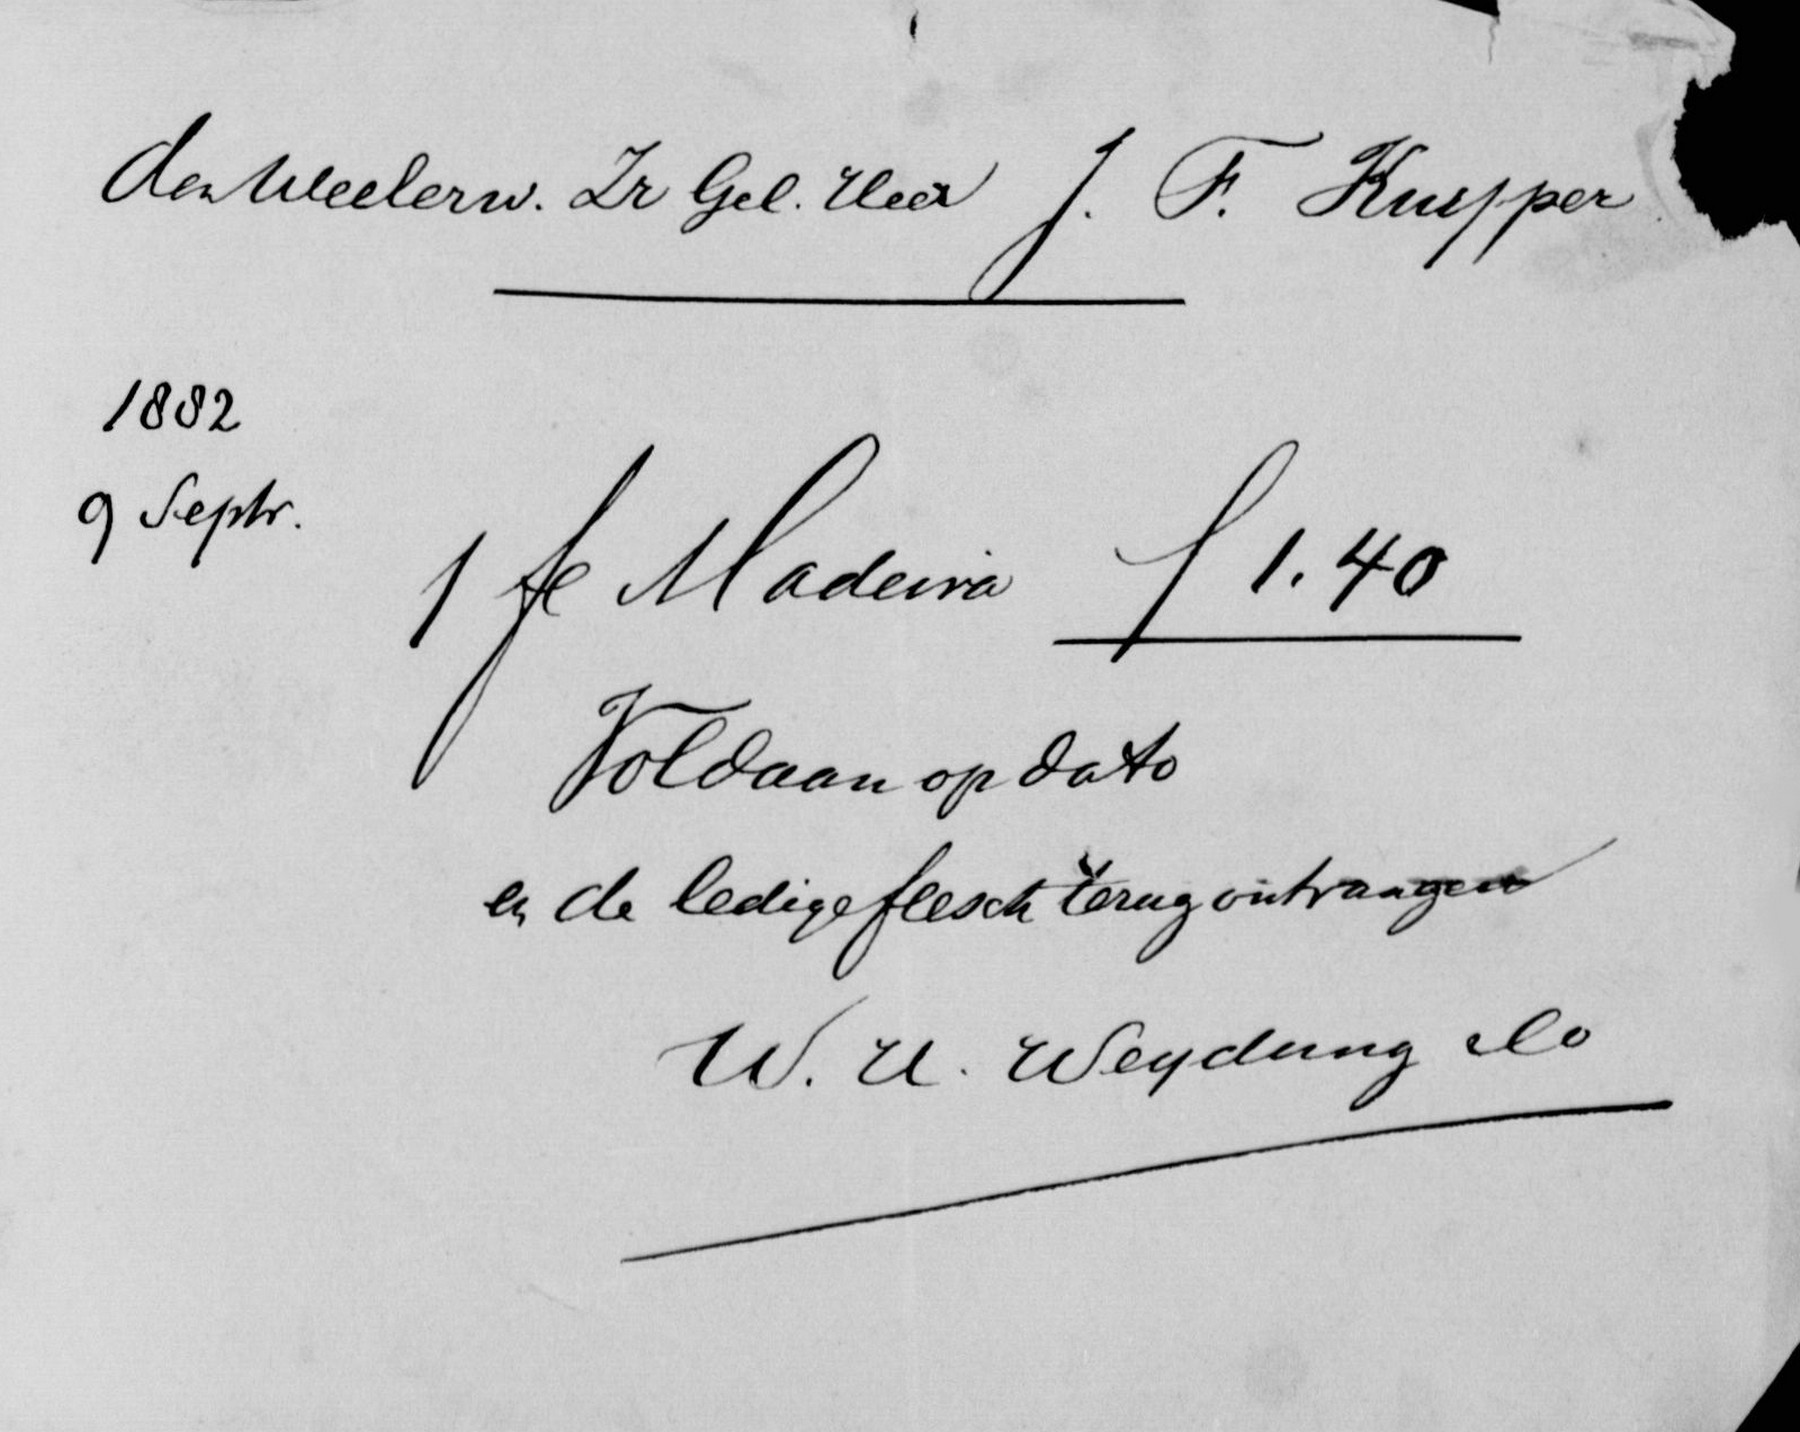 den Weleerw. Zr Gel. Heer J. F. Kuypper
1882
9 Septr.
1 fle Madeira f 1.40
Voldaan op dato
en de ledige flesch terug ontvangen
W. H. Weydung & Co